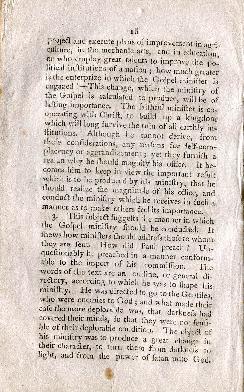 18
project and execute plans of improvement in agri-
culture, in the mechanic arts, and in education,
or who employ great talents to improve the po-
litical institutions of a nation; how much greater
is the enterprize in which the Gospel minister is
engaged!—This change, which the ministry of
the Gospel is calculated to produce, will be of
lasting importance. The faithful minister is co-
operating with Christ, to build up a kingdom,
which will long survive the ruin of all earthly in-
stitutions. Although he cannot derive, from
these considerations, any motives for self-com-
placency or aggrandizement; yet they furnish a
reason why he should magnify his office. It be-
comes him to keep in view the important result
which is to be produced by his ministry, that he
should realize the magnitude of his office, and
conduct the ministry which he receives in such a
manner as to make others feel its importance.
3. This subject suggests the manner in which
the Gospel ministry should be conducted. It
shews how ministers should address those to whom
they are sent. How did Paul preach? Un-
questionably he preached in a manner conform-
able to the import of his commission. The
words of the text are an outline, or general di-
rectory, according to which he was to shape his
ministry. He was directed to go to the Gentiles,
who were enemies to God; and what made their
case the more deplorable was, that darkness had
covered their minds, so that they were not sensi-
ble of their deplorable condition. The object of
his ministry was to produce a great change in
their character, to turn them from darkness to
light, and from the power of satan unto God.